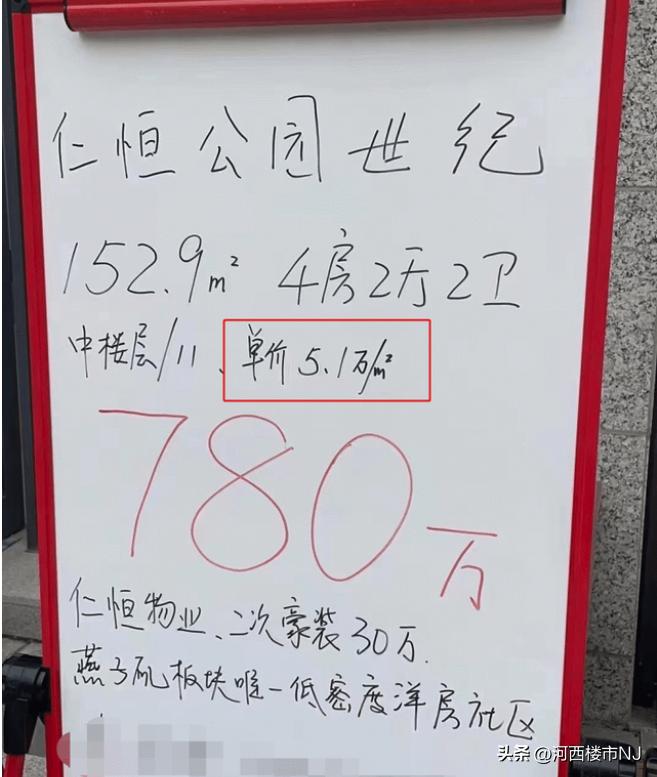 仁恒公园世纪
152.9m² 4房2厅2卫
中楼层/11、单价5.1万/m²
780万
仁恒物业、二次豪装30万.
燕子矶板块唯一低密度洋房社区
头条 @河西楼市NJ